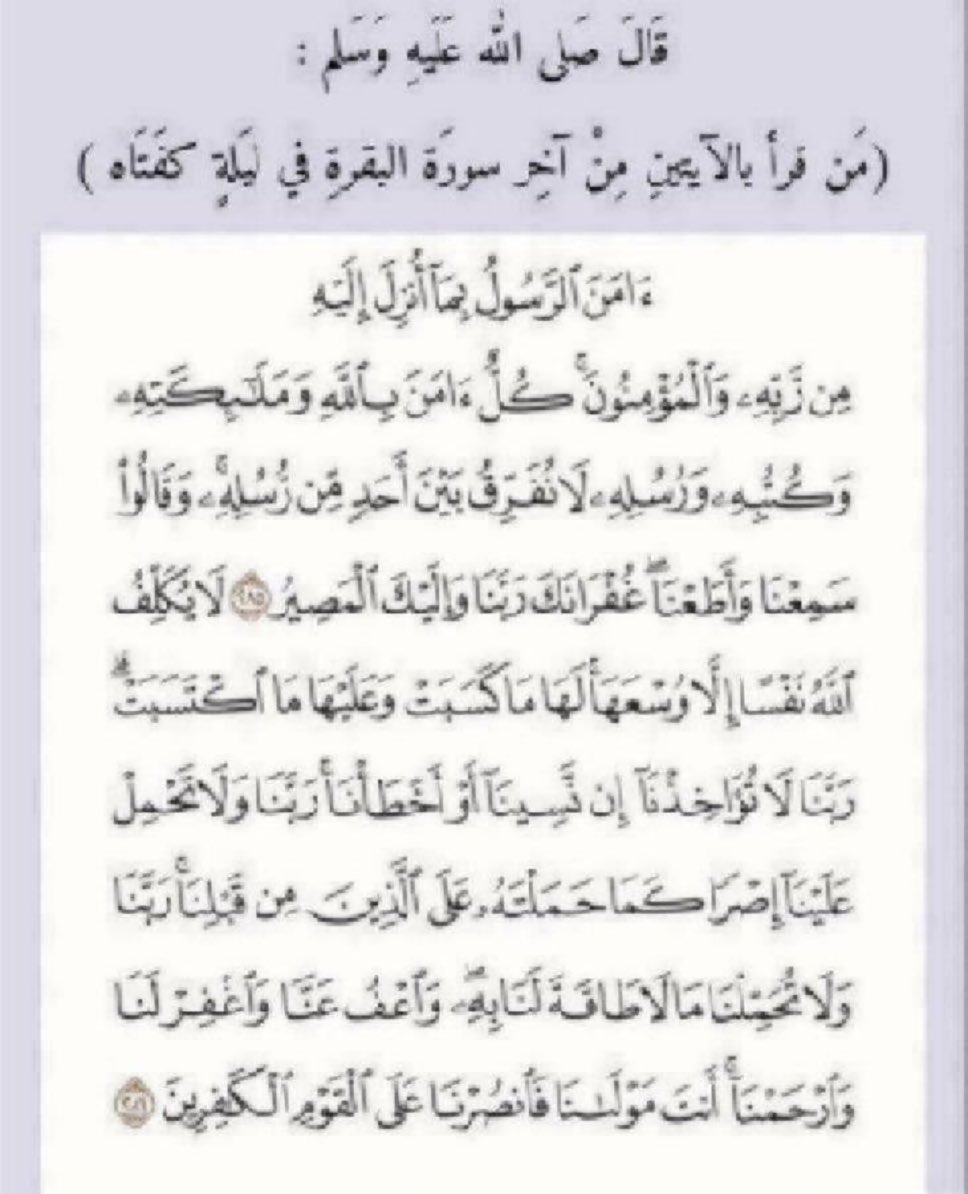 قَالَ صَلى الله عَلَيهِ وَسَلم :
(مَن قرأ بالآيتينِ مِنْ آخِر سورَة البقرةِ في لَيلةٍ كفَتَاه )
ءَامَنَ ٱلرَّسُولُ بِمَآ أُنزِلَ إِلَيْهِ
مِن رَّبِّهِۦ وَٱلْمُؤْمِنُونَ ۚ كُلٌّ ءَامَنَ بِٱللَّهِ وَمَلَـٰٓئِكَتِهِۦ
وَكُتُبِهِۦ وَرُسُلِهِۦ لَا نُفَرِّقُ بَيْنَ أَحَدٍ مِّن رُّسُلِهِۦ ۚ وَقَالُوا۟
سَمِعْنَا وَأَطَعْنَا ۖ غُفْرَانَكَ رَبَّنَا وَإِلَيْكَ ٱلْمَصِيرُ ٢٨٥ لَا يُكَلِّفُ
ٱللَّهُ نَفْسًا إِلَّا وُسْعَهَا ۚ لَهَا مَا كَسَبَتْ وَعَلَيْهَا مَا ٱكْتَسَبَتْ ۗ
رَبَّنَا لَا تُؤَاخِذْنَآ إِن نَّسِينَآ أَوْ أَخْطَأْنَا ۚ رَبَّنَا وَلَا تَحْمِلْ
عَلَيْنَآ إِصْرًا كَمَا حَمَلْتَهُۥ عَلَى ٱلَّذِينَ مِن قَبْلِنَا ۚ رَبَّنَا
وَلَا تُحَمِّلْنَا مَا لَا طَاقَةَ لَنَا بِهِۦ ۖ وَٱعْفُ عَنَّا وَٱغْفِرْ لَنَا
وَٱرْحَمْنَآ ۚ أَنتَ مَوْلَىٰنَا فَٱنصُرْنَا عَلَى ٱلْقَوْمِ ٱلْكَـٰفِرِينَ ٢٨٦